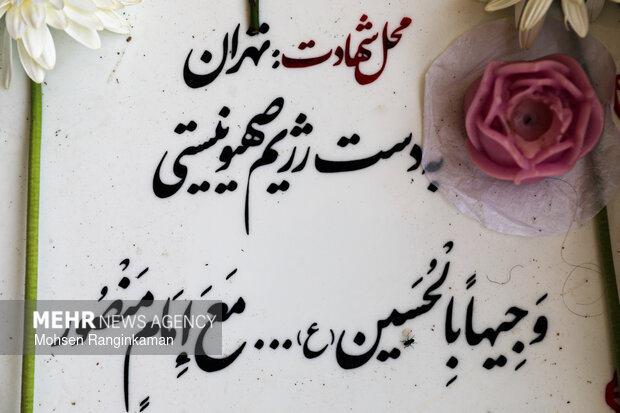 محل شهادت: تهران
بدست رژیم صهیونیستی
وَجیهاً بِالْحُسَین (ع)... مَعَ إِمامٍ مَنْصُور
MEHR NEWS AGENCY
Mohsen Ranginkaman